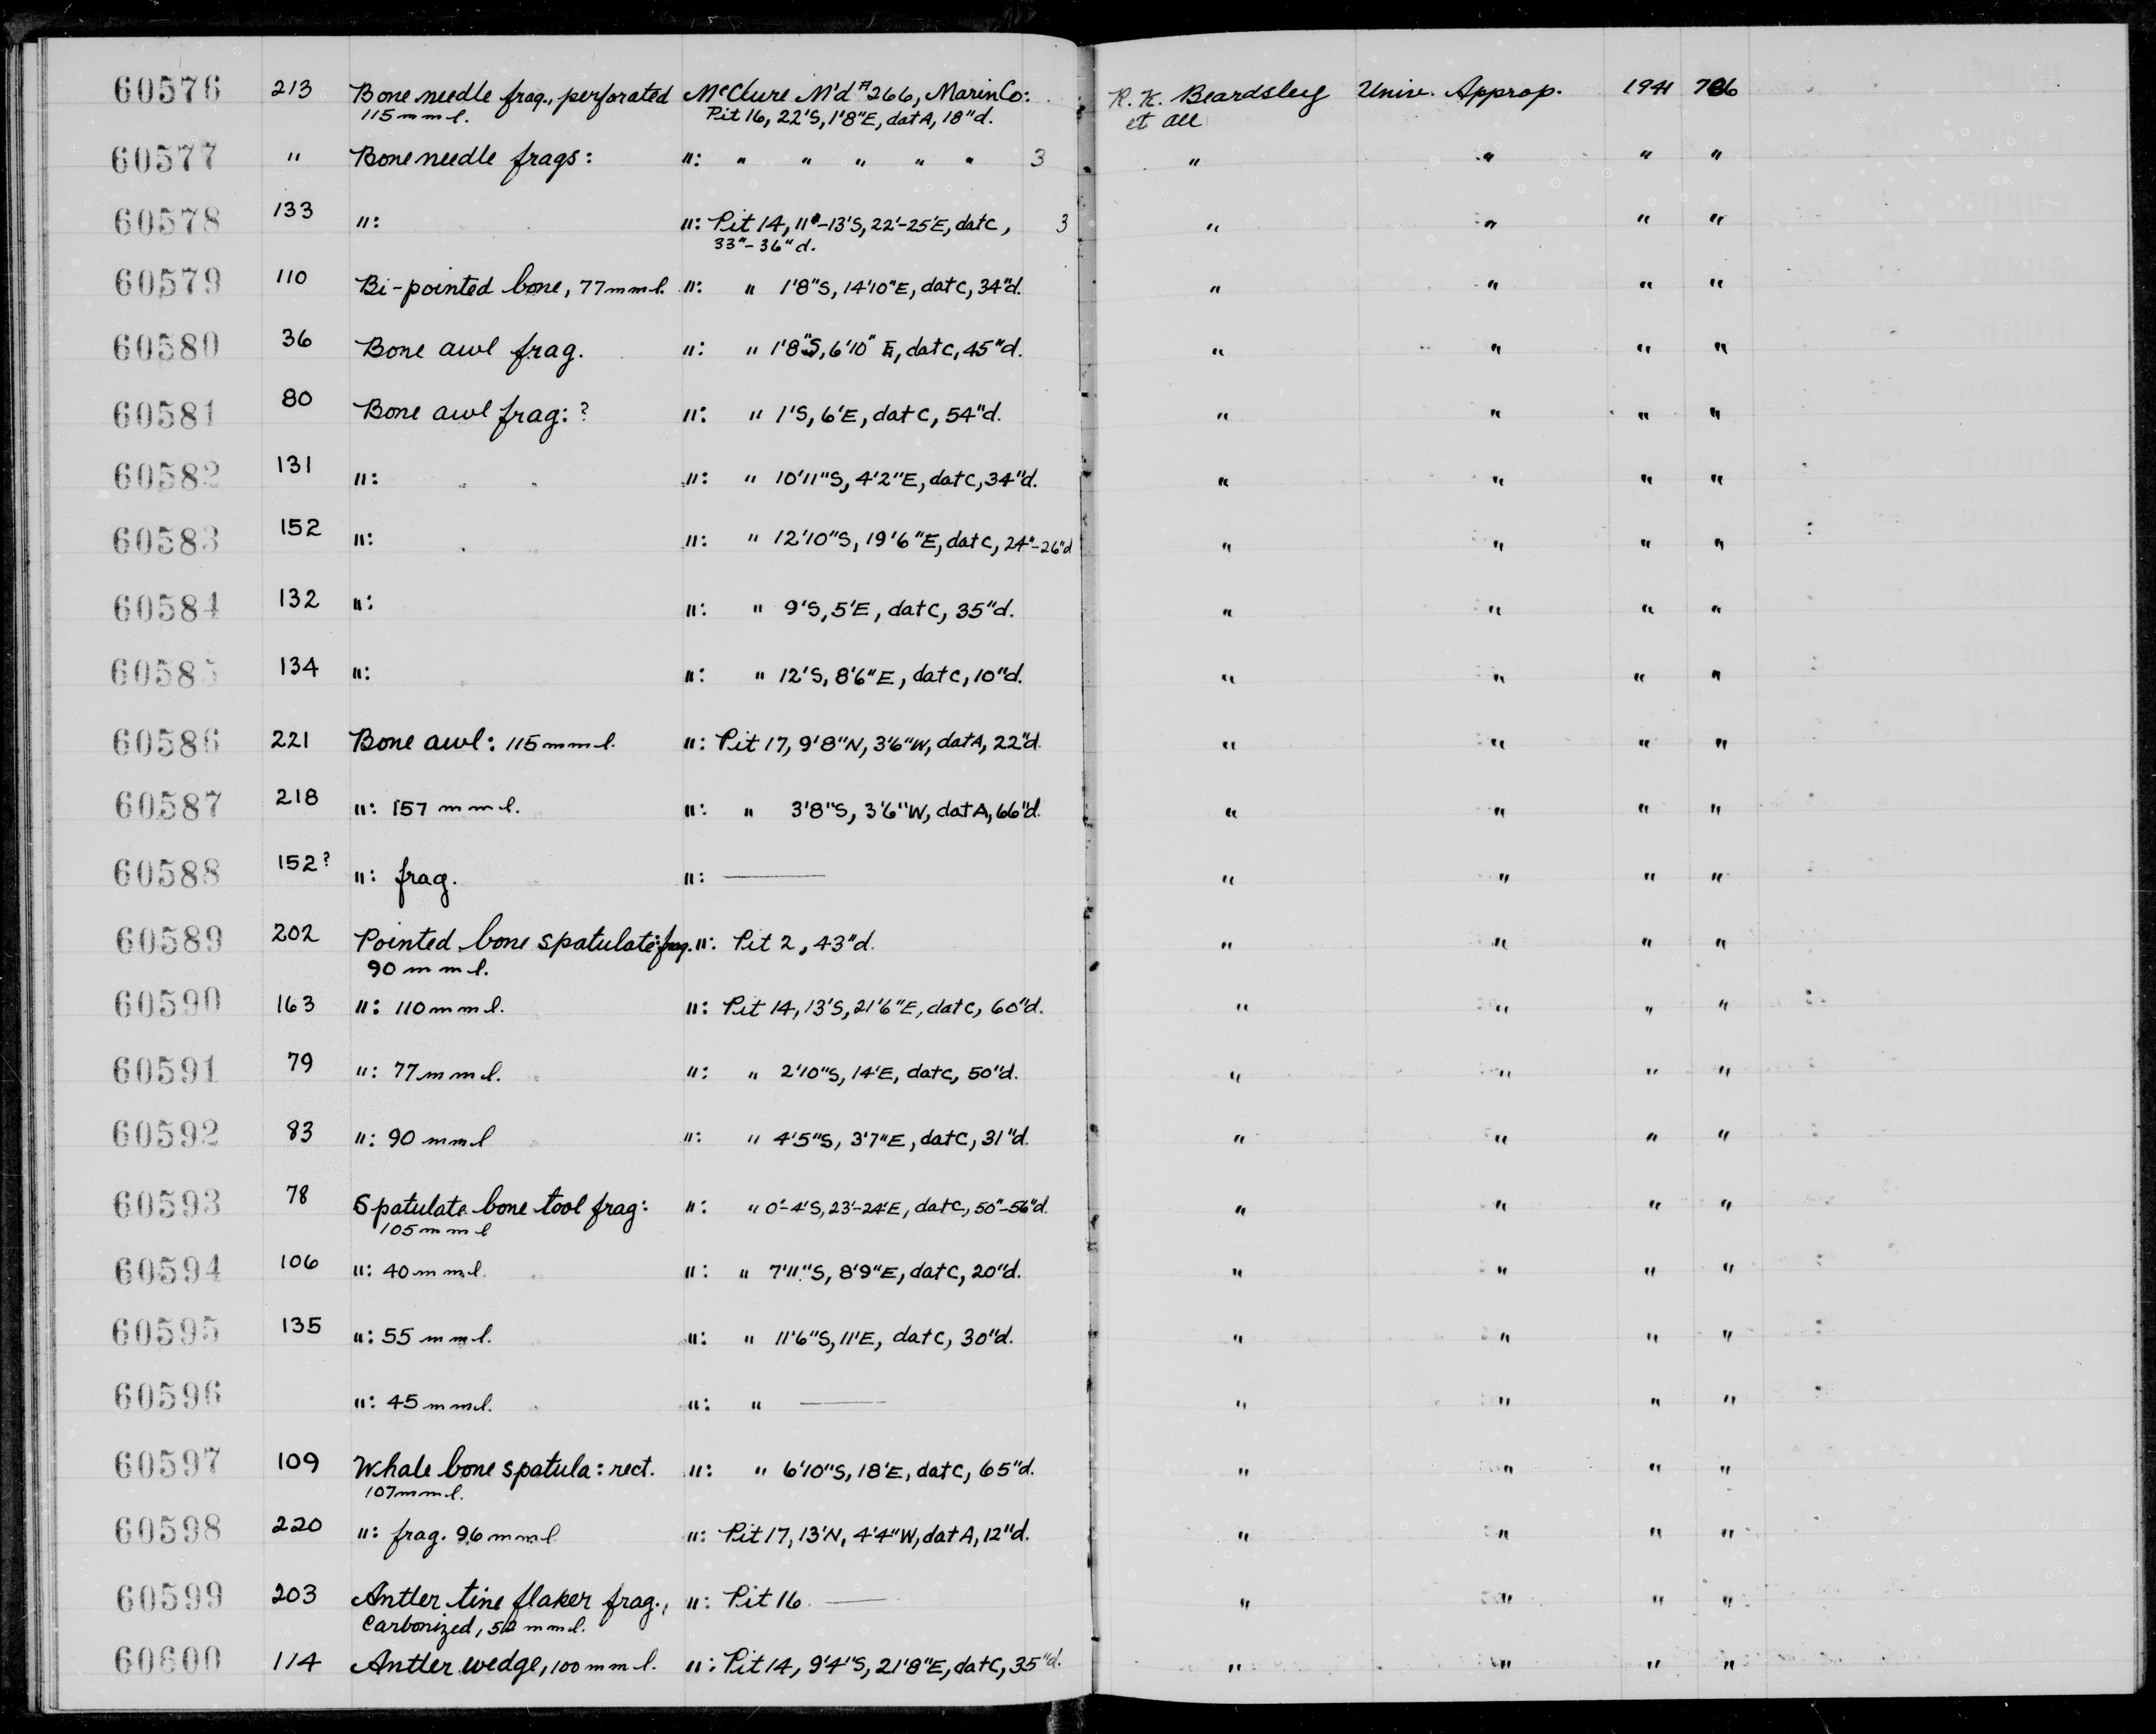 60576 213 Bone needle frag., perforated McClure M'd #266, Marin Co: R. K. Beardsley Univ. Approp. 1941 786
115 mm l. Pit 16, 22'S, 1'8"E, dat A, 18"d. et all
60577 " Bone needle frags: ": " " " " " 3 " " " "
60578 133 ": ": Pit 14, 11'-13'S, 22'-25'E, dat C, 3 " " " "
33"-36"d.
60579 110 Bi-pointed bone, 77 mm l. ": " 1'8"S, 14'10"E, dat C, 34"d. " " " "
60580 36 Bone awl frag. ": " 1'8"S, 6'10" E, dat C, 45"d. " " " "
60581 80 Bone awl frag: ? ": " 1'S, 6'E, dat C, 54"d. " " " "
60582 131 ": ": " 10'11"S, 4'2"E, dat C, 34"d. " " " "
60583 152 ": ": " 12'10"S, 19'6"E, dat C, 24"-26"d " " " "
60584 132 ": ": " 9'S, 5'E, dat C, 35"d. " " " "
60585 134 ": ": " 12'S, 8'6"E, dat C, 10"d. " " " "
60586 221 Bone awl: 115 mm l. ": Pit 17, 9'8"N, 3'6"W, dat A, 22"d. " " " "
60587 218 ": 157 mm l. ": " 3'8"S, 3'6"W, dat A, 66"d. " " " "
60588 152? ": frag. ": — " " " "
60589 202 Pointed bone spatulate: frag. ": Pit 2, 43"d. " " " "
90 mm l.
60590 163 ": 110 mm l. ": Pit 14, 13'S, 21'6"E, dat C, 60"d. " " " "
60591 79 ": 77 mm l. ": " 2'10"S, 14'E, dat C, 50"d. " " " "
60592 83 ": 90 mm l ": " 4'5"S, 3'7"E, dat C, 31"d. " " " "
60593 78 Spatulate bone tool frag: ": " 0'-4'S, 23'-24'E, dat C, 50"-56"d. " " " "
105 mm l
60594 106 ": 40 mm l. ": " 7'11"S, 8'9"E, dat C, 20"d. " " " "
60595 135 ": 55 mm l. ": " 11'6"S, 11'E, dat C, 30"d. " " " "
60596 ": 45 mm l. ": " — " " " "
60597 109 Whale bone spatula: rect. ": " 6'10"S, 18'E, dat C, 65"d. " " " "
107 mm l.
60598 220 ": frag. 96 mm l ": Pit 17, 13'N, 4'4"W, dat A, 12"d. " " " "
60599 203 Antler tine flaker frag., ": Pit 16 — " " " "
Carbonized, mm l.
60600 114 Antler wedge, 100 mm l. ": Pit 14, 9'4"S, 21'8"E, dat C, 35"d. " " " "